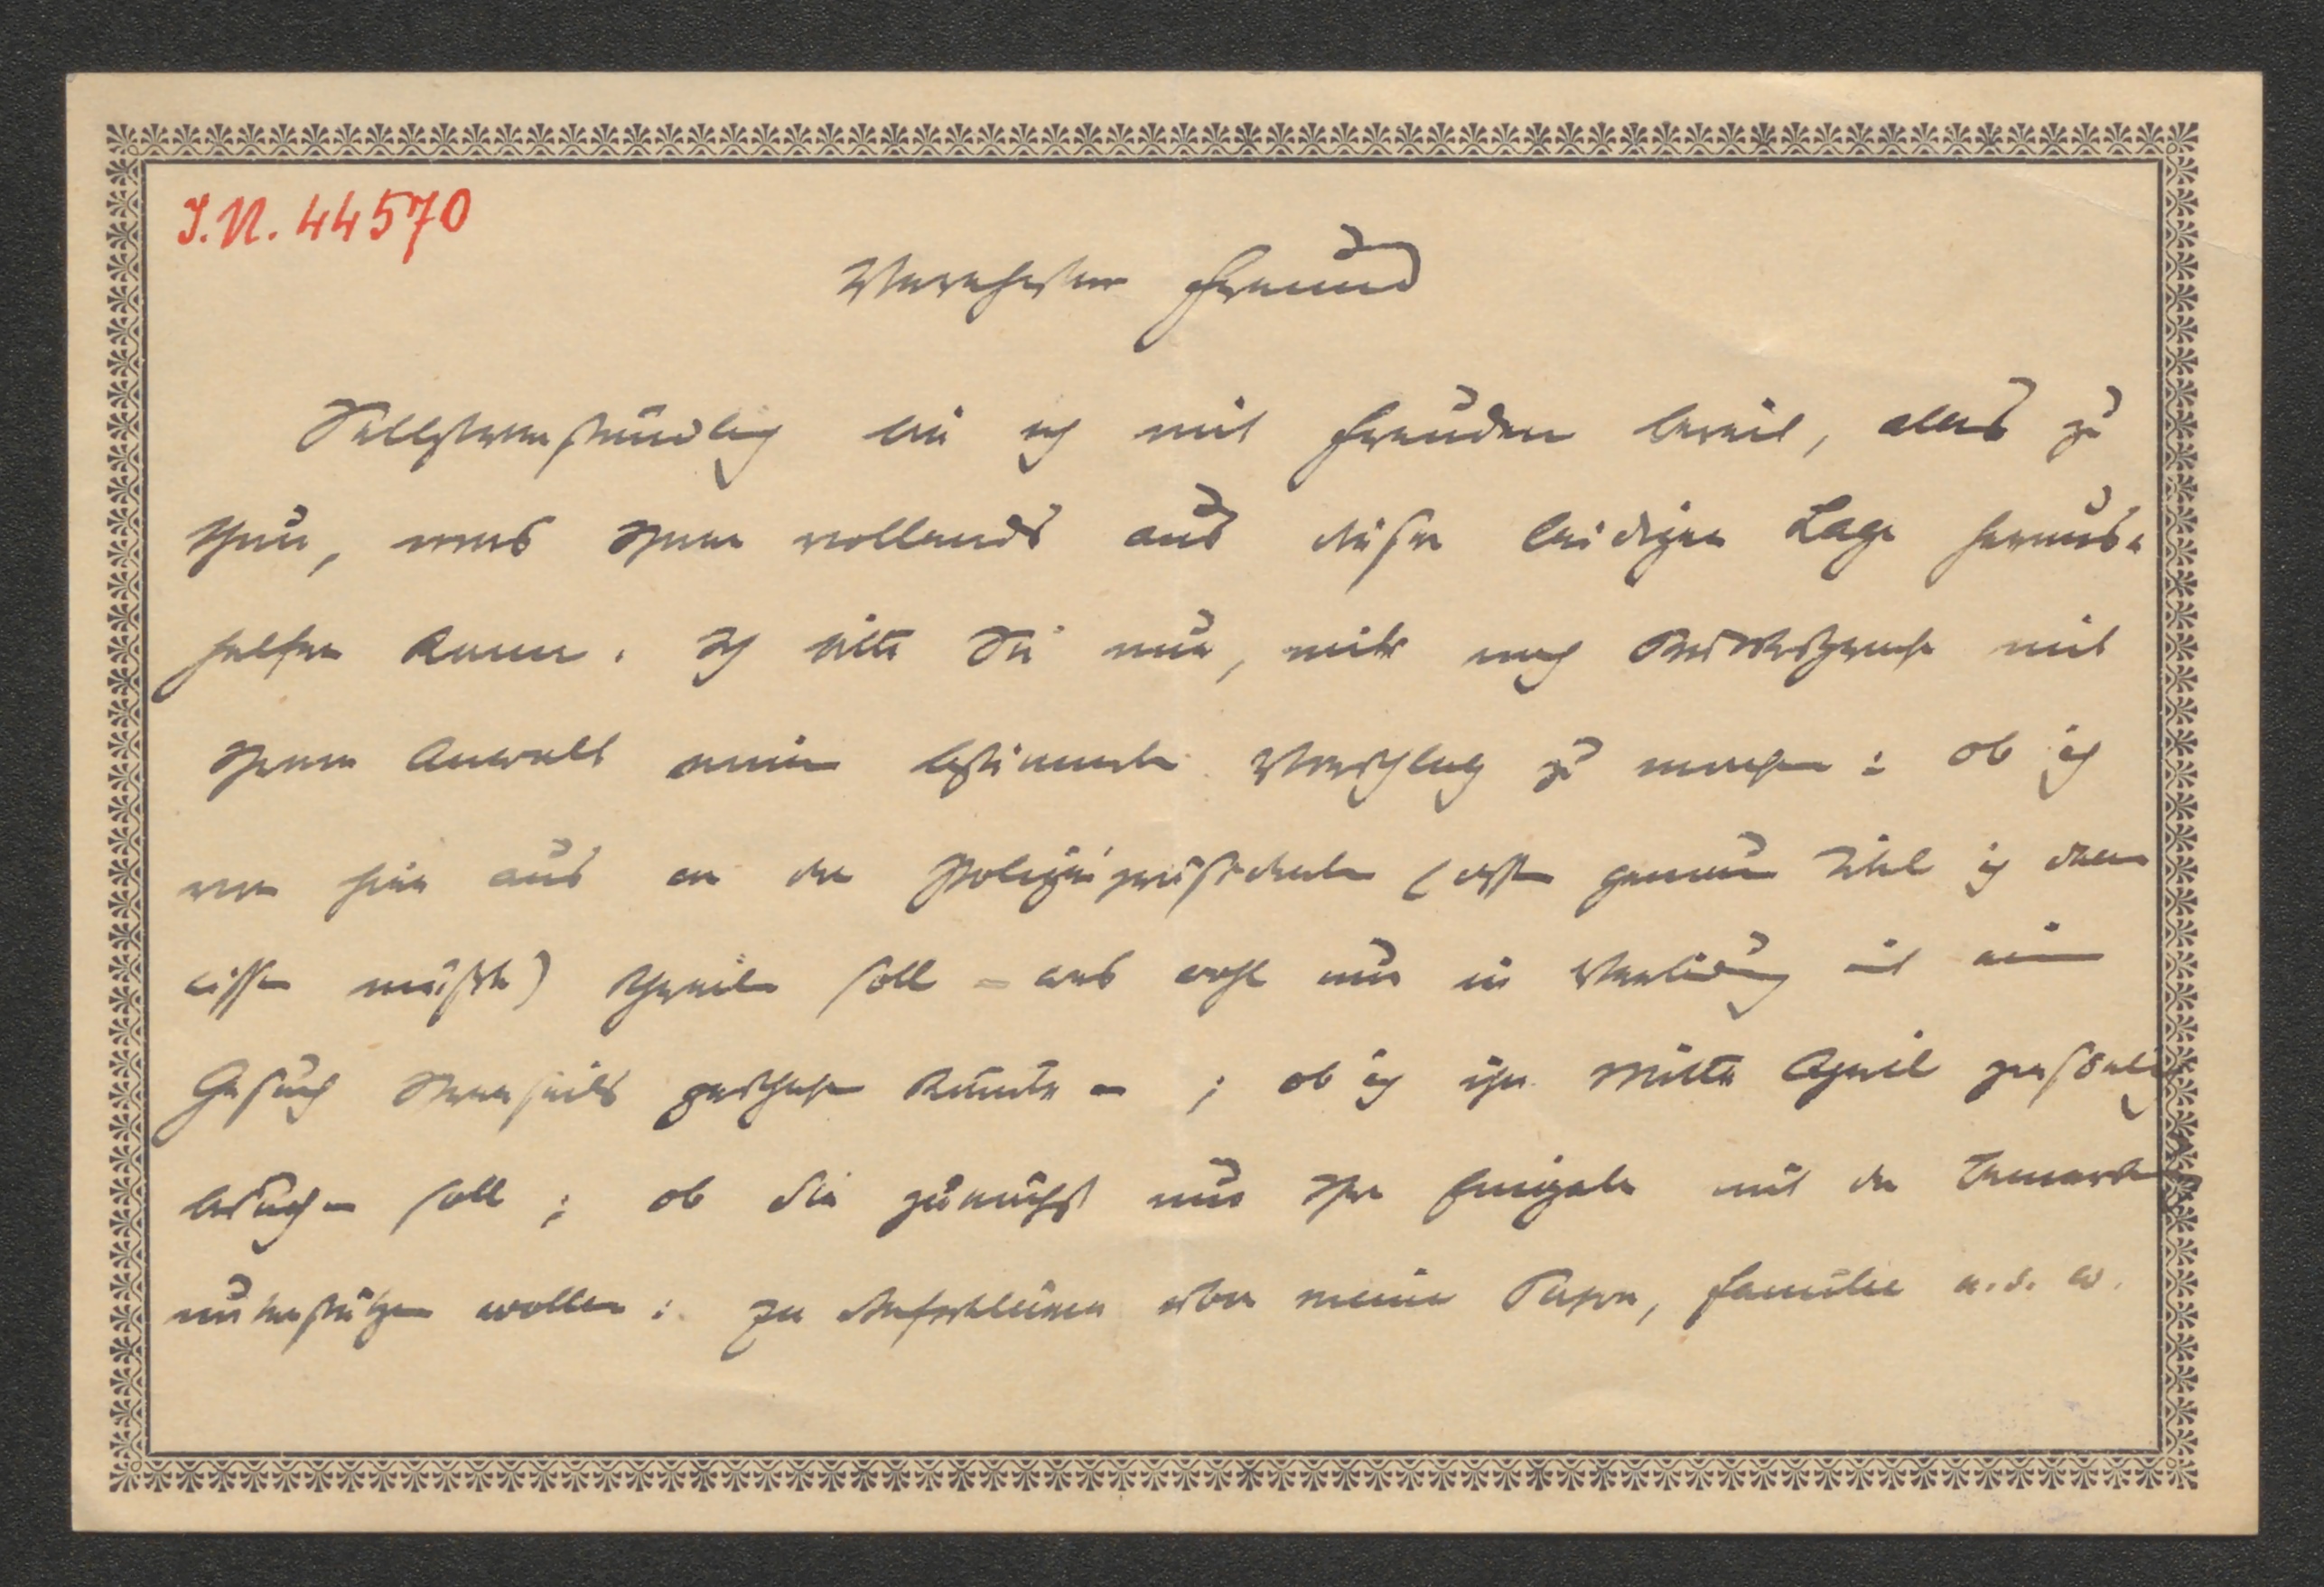 I.N. 44570
Verehrter Freund
Selbstverständlich bin ich mit Freuden bereit, alles zu
thun, was Ihnen vollends aus dieser leidigen Lage heraus-
helfen kann. Ich bitte Sie nur, mir nach Rücksprache mit
Ihrem Anwalt einen bestimmten Vorschlag zu machen: ob ich
von hier aus an den Polizeipräsidenten (dessen genauen Titel ich dann
wissen müßte) schreiben soll – was wohl nur in Verbindung mit einem
Gesuch Ihrerseits geschehen könnte – ; ob ich ihn Mitte April persönlich
besuchen soll; ob Sie zunächst nur Ihre Eingabe mit der
unterstützen wollen: zu über meine Person, Familie u.s.w.